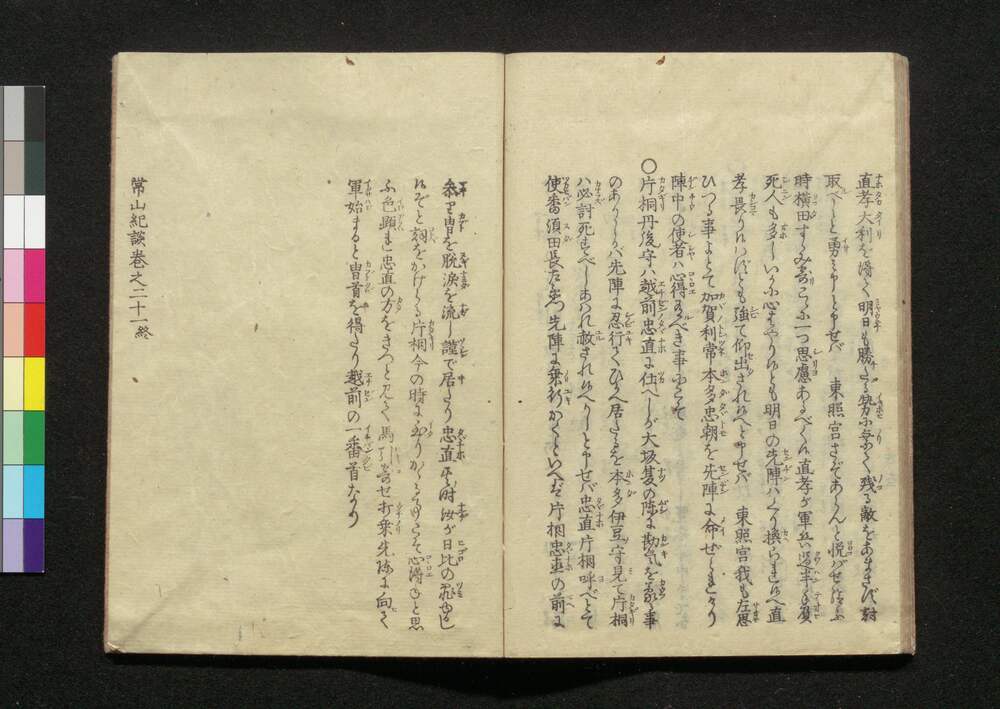 直孝大利を得て明日も勝たる勢に乗て残る敵をあまさず討
取べしと勇み申と申せば　東照宮さぞあらんと悦ばせ給ふ
時横田すゝみ寄こゝに一つ思慮あるべく候直孝が軍兵過半手負
死人も多しいかに心はやり候とも明日の先陣はくり換らるべし直
孝長り候はずとも強て仰出され候へと申せば　東照宮我も左思
ひつる事よとて加賀利常本多忠朝を先陣に命ぜられけり
陳中の使者は心得有べき事にこそ
○片桐丹後守は越前忠直に仕へしが大坂夏の陳に勘気を蒙る事
のありしが先陣に忍行てひかへ居たるを本多伊豆守見て片桐
は必討死すべしあはれ赦され候へかしと申せば忠直片桐呼べとて
使番須田長左衛門先陣に乗行かくといへば片桐忠直の前に
参り冑を脱涙を流し謹で居たり忠直其時汝が日比の罪ゆるし
候ぞと詞をかけらる片桐今の時に至りかゝる御こと心得ずと思
ふ色顕れ忠直の方をきつと見て馬引寄せ打乗先陣に向て
軍始まると冑首を得たり越前の一番首なり
常山紀談巻之二十一終